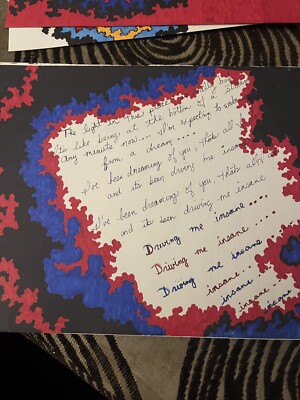 The light in this place is
its like being at the bottom of a
Any minute now.... I'm expecting to wake
from a dream....
I've been dreaming of you, thats all-
and its been driving me insane
I've been dreaming of you, thats all
and its been driving me insane
Driving me insane....
Driving me insane....
Driving me insane
insane...
insane
insane...
insane